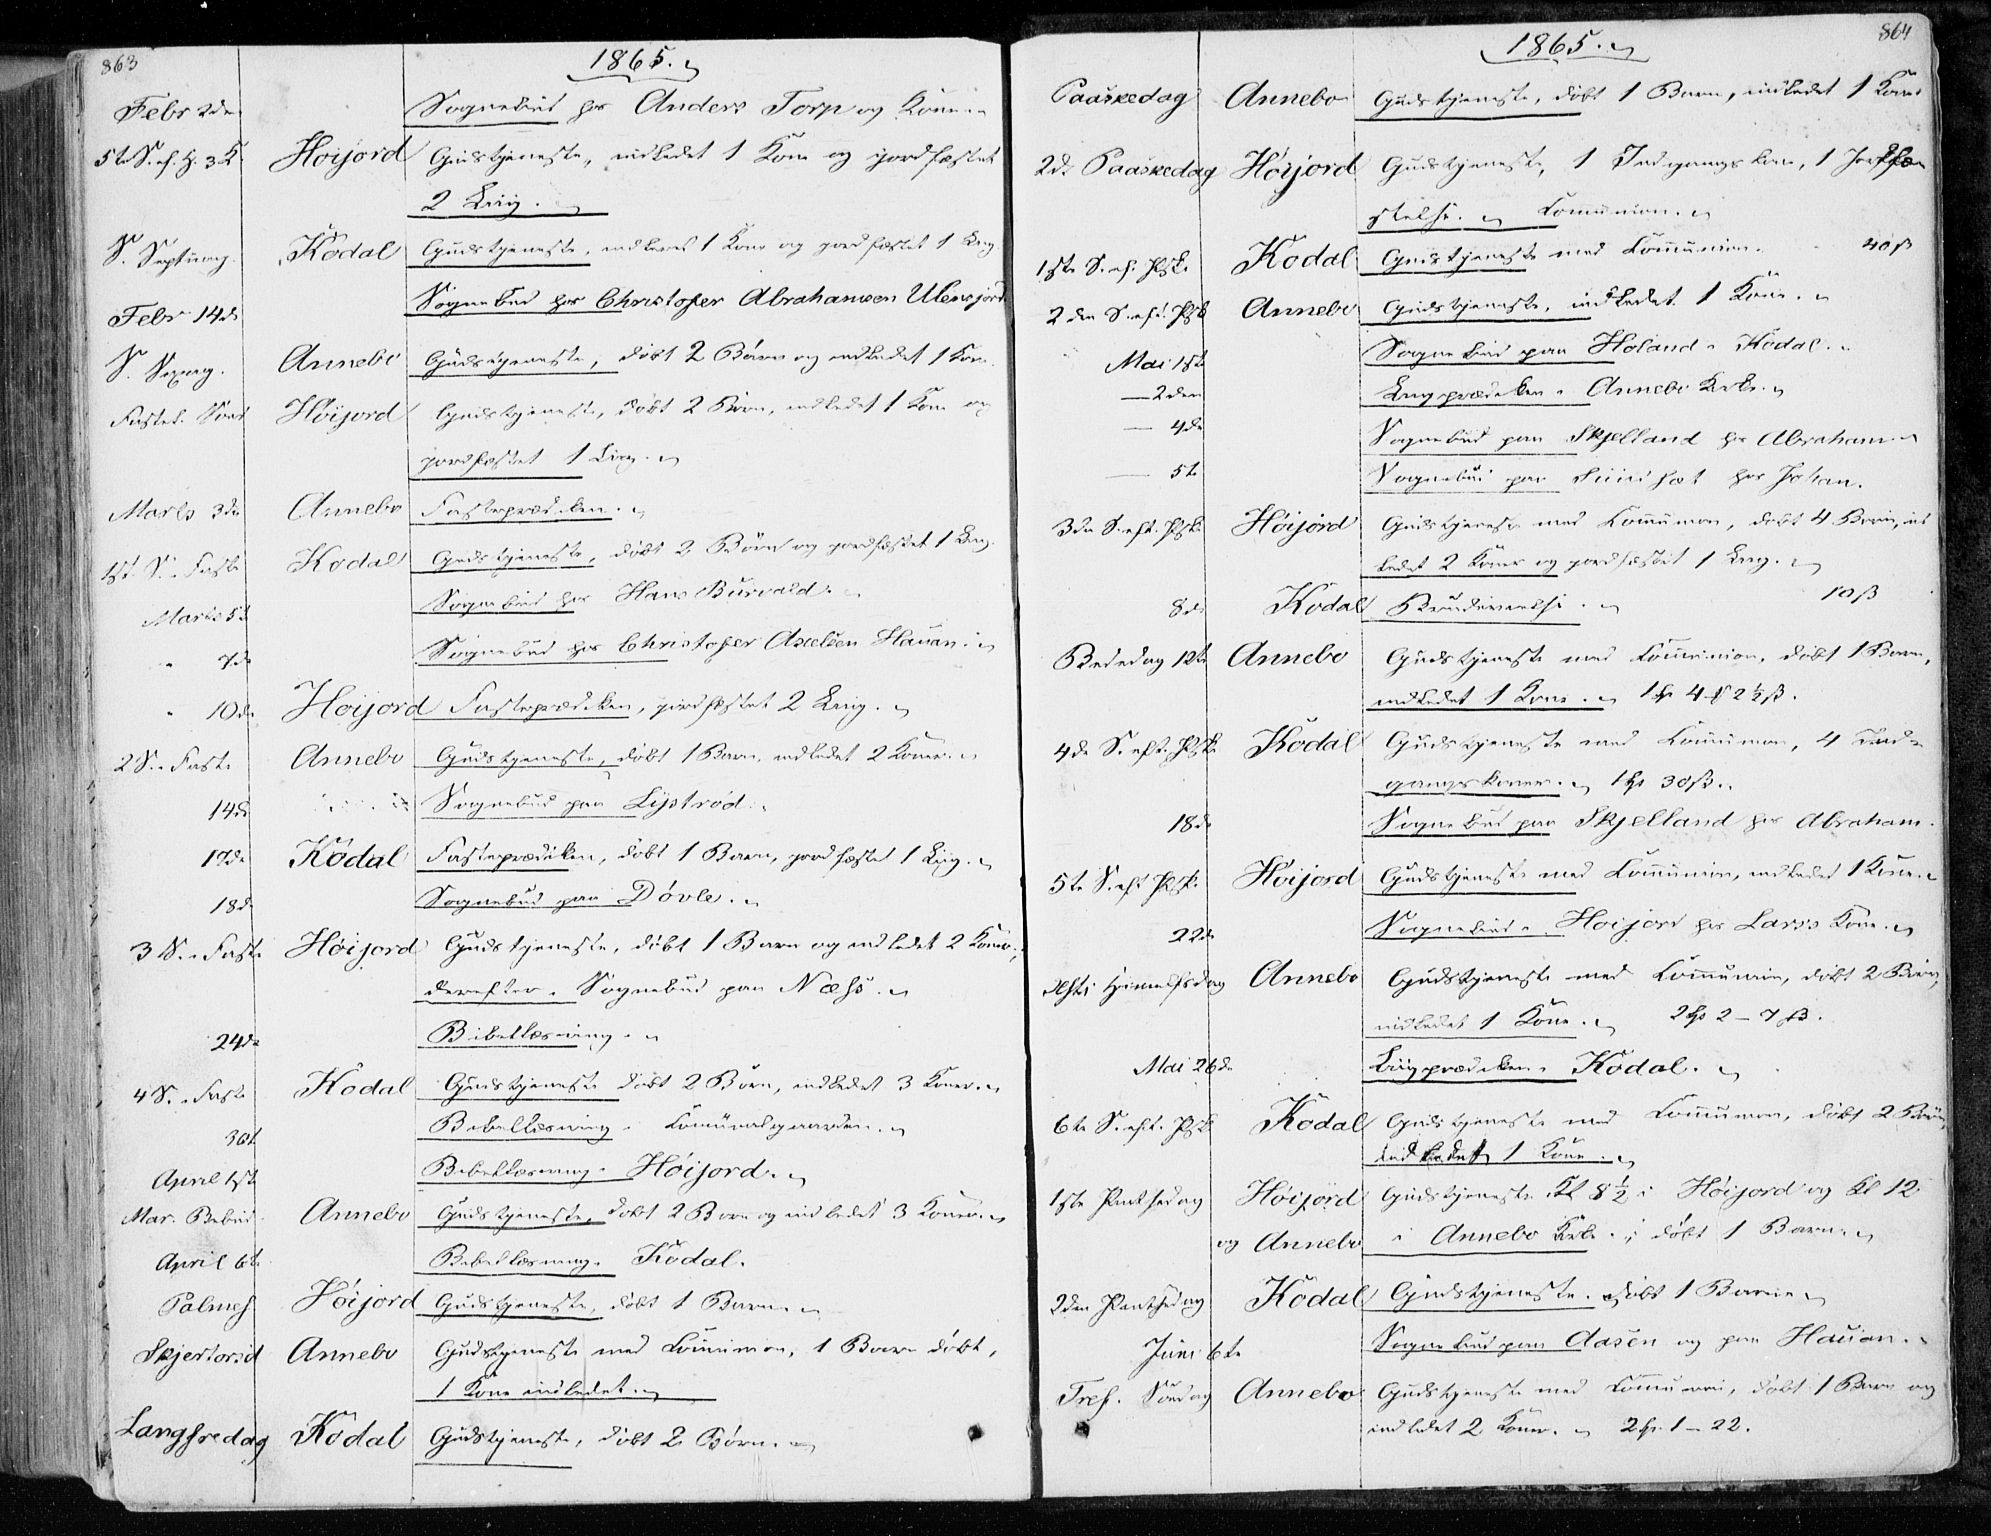 863
1865.
Febr 2den Sognebud hos Anders Torp og Kone.
5te S. ef. H. 3 K. Höijord Gudstjeneste, indledet 1 Kone og jordfæstet
2 Liig.
S. Septuag. Kodal Gudstjeneste, indledet 1 Kone og jordfæstet 1 Liig.
Febr 14de Sognebud hos Christofer Abrahamsen
S. Sexag. Annebo Gudstjeneste, döbt 2 Börn og indledet 1 Kone.
Fastel. Sönd Höijord Gudstjeneste, döbt 2 Börn, indledet 1 Kone og
jordfæstet 1 Liig.
Marts 3de Annebo Fasteprædiken.
1st. S. i Faste Kodal Gudstjeneste, döbt 2 Börn og jordfæstet 1 Liig.
Marts 5te Sognebud hos Hans Burvald.
" 7de Sognebud hos Christofer Axelsen Hauan.
" 10de Höijord Fasteprædiken, jordfæstet 2 Liig.
2 S. i Faste Annebo Gudstjeneste, döbt 1 Barn, indledet 2 Koner.
14de Sognebud paa Lystrød.
17de Kodal Fasteprædiken, döbt 1 Barn, jordfæstet 1 Liig.
18de Sognebud paa Døvle.
3 S. i Faste Höijord Gudstjeneste, döbt 1 Barn og indledet 2 Koner;
derefter i Sognebud paa Næss.
24de Bibellæsning.
4 S. i Faste Kodal Gudstjeneste döbt 2 Börn, indledet 3 Koner.
30te Bibellæsning i Communalgaarden.
April 1st Bibellæsning i Höijord.
Mar. Bebud. Annebo Gudstjeneste, döbt 2 Börn og indledet 3 Koner.
April 6te Bibellæsning i Kodal.
Palmes Höijord Gudstjeneste, döbt 1 Barn.
Skjertorsd Annebo Gudstjeneste med Communion, 1 Barn döbt,
1 Kone indledet.
Langfredag Kodal Gudstjeneste, döbt 2 Börn.
864
1865.
Paaskedag Annebo Gudstjeneste, döbt 1 Barn, indledet 1 Kone
2de Paaskedag Höijord Gudstjeneste, 1 Indgangskone, 1 Jordfæ-
stelse. Communion.
1ste S. ef. Psk. Kodal Gudstjeneste med Communion. 40 ß
2den S. eft. Psk Annebo Gudstjeneste, indledet 1 Kone.
Mai 1ste Sognebud paa Holand i Kodal.
— 2den Liigprædiken i Annebo Kirke.
— 4de Sognebud paa Skjelland hos Abraham.
— 5te Sognebud paa hos Johan.
3de S. eft. Psk. Höijord Gudstjeneste med Communion, döbt 4 Börn, ind
ledet 2 Koner og jordfæstet 1 Liig.
8de Kodal Brudevielse. 10 ß
Bededag 12te Annebo Gudstjeneste med Communion, döbt 1 Barn,
indledet 1 Kone. 1 Sp 4 2½ ß.
4de S. eft. Psk. Kodal Gudstjeneste med Communion, 4 Ind-
gangskoner. 1 Sp 30 ß.
18de Sognebud paa Skjelland hos Abraham.
5te S. eft Psk. Höijord Gudstjeneste med Communion, indledet 1 Kone.
22de Sognebud i Höijord hos Larss Kone.
Chsti Himmelfsdag Annebo Gudstjeneste med Communion, döbt 2 Börn,
indledet 1 Kone. 2 Sp 2 – 7 ß.
Mai 26de Liigprædiken i Kodal.
6te S. eft. Psk Kodal Gudstjeneste med Communion, döbt 2 Börn,
indledet 1 Kone.
1ste Pintsedag Höijord Gudstjeneste Kl 8½ i Höijord og Kl 12
og Annebo i Annebo Kirke; döbt 1 Barn.
2den Pintsedag Kodal Gudstjeneste. döbt 1 Barn
Juni 6te Sognebud paa Aasen og paa Hauan.
Tref. Söndag Annebo Gudstjeneste med Communion, döbt 1 Barn og
indledet 2 Koner. 2 Sp. 1 – 22.